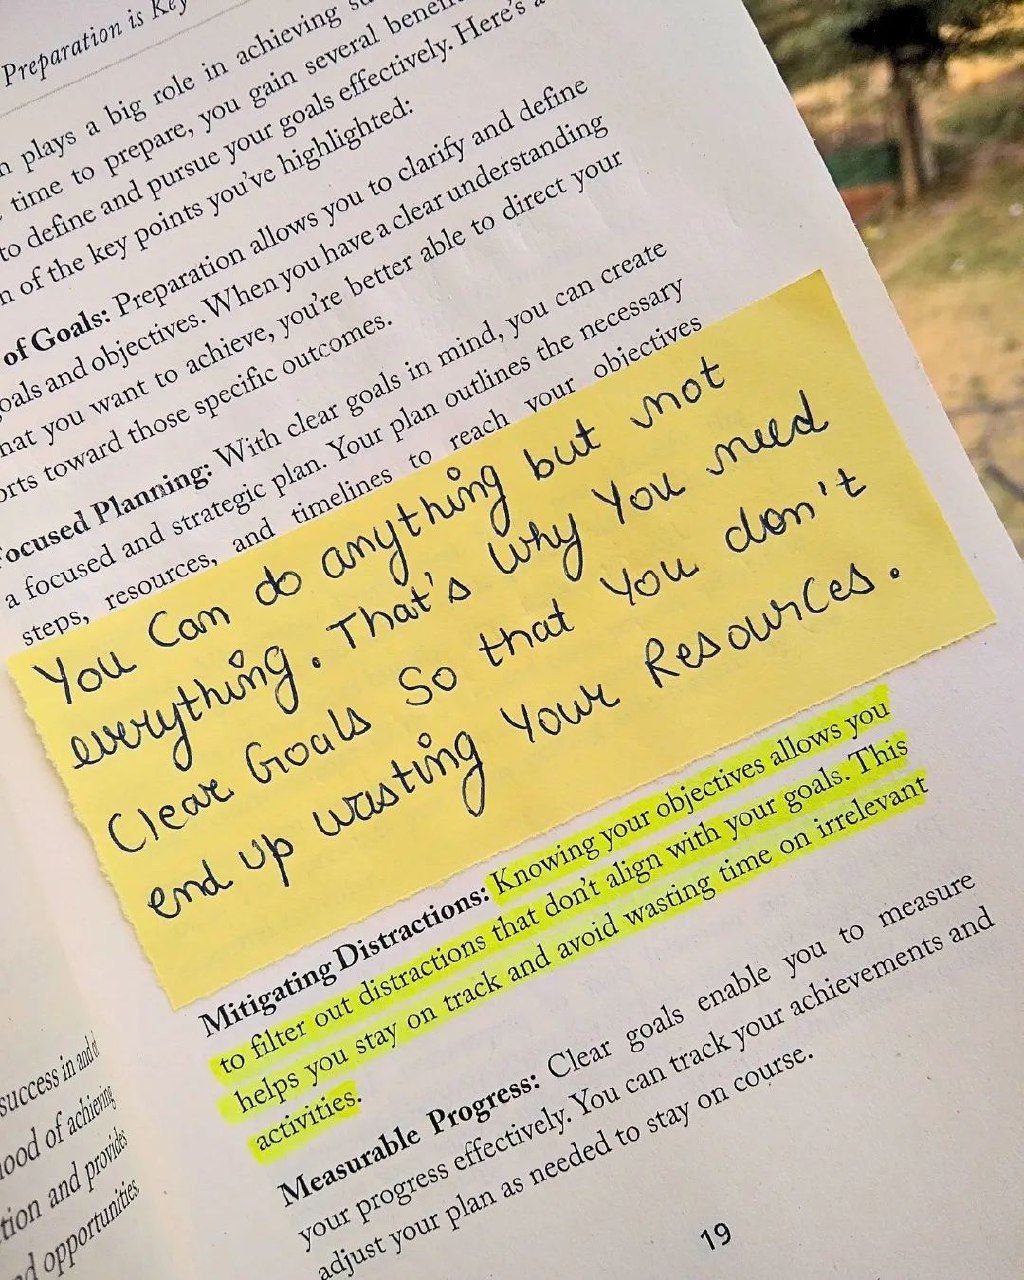 Preparation is Key
plays a big role in achieving
time to prepare, you gain several
to define and pursue your goals effectively. Here's
of the key points you've highlighted:
of Goals: Preparation allows you to clarify and define
and objectives. When you have a clear understanding
you want to achieve, you're better able to direct your
toward those specific outcomes.
Planning: With clear goals in mind, you can create
a focused and strategic plan. Your plan outlines the necessary
steps, resources, and timelines to reach your objectives
You Can do anything but not
everything. That's why You need
Clear Goals So that You don't
end up wasting Your Resources.
Mitigating Distractions: Knowing your objectives allows you
to filter out distractions that don't align with your goals. This
helps you stay on track and avoid wasting time on irrelevant
activities.
Measurable Progress: Clear goals enable you to measure
your progress effectively. You can track your achievements and
adjust your plan as needed to stay on course.
19
success in and
of achieving
and provides
opportunities